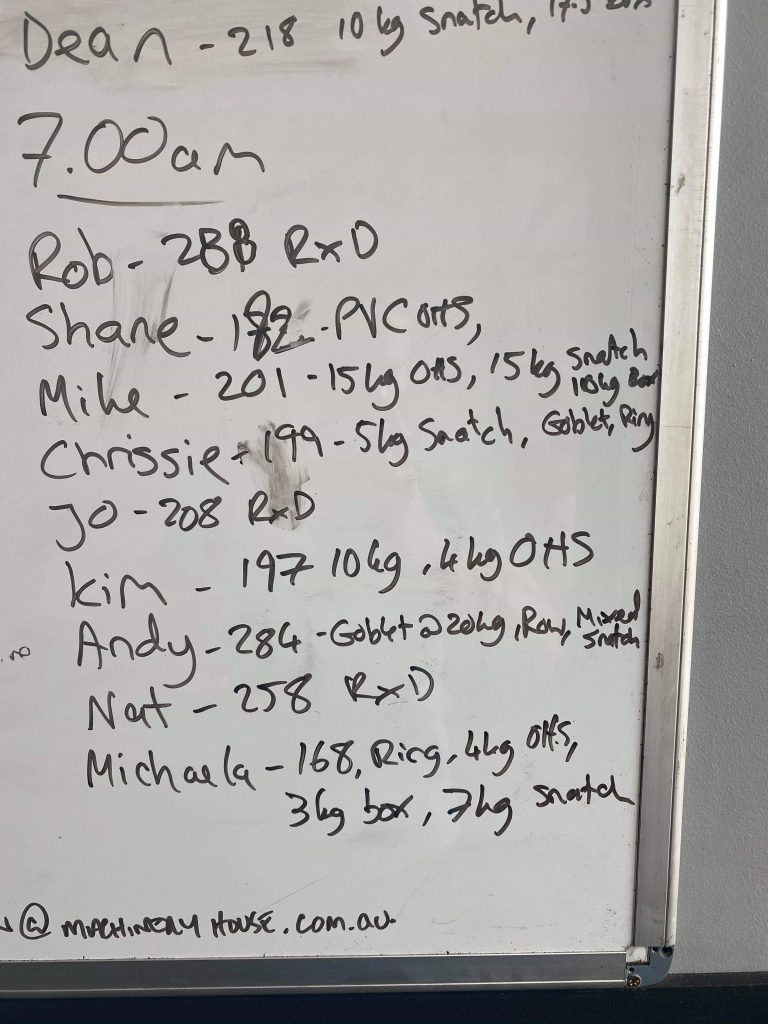 Dean - 218 10kg Snatch,
7.00am
Rob - 288 RxD
Shane - 182 - PVC OHS,
Mike - 201 - 15kg OHS, 15kg Snatch
10kg Box
Chrissie - 199 - 5kg Snatch, Goblet, Ring
Jo - 208 RxD
Kim - 197 10kg, 4kg OHS
Andy - 284 - Goblet @ 20kg, Row, Mixed
Snatch
Nat - 258 RxD
Michaela - 168, Ring, 4kg OHS,
3kg box, 7kg snatch
@ MACHINERY HOUSE.com.au